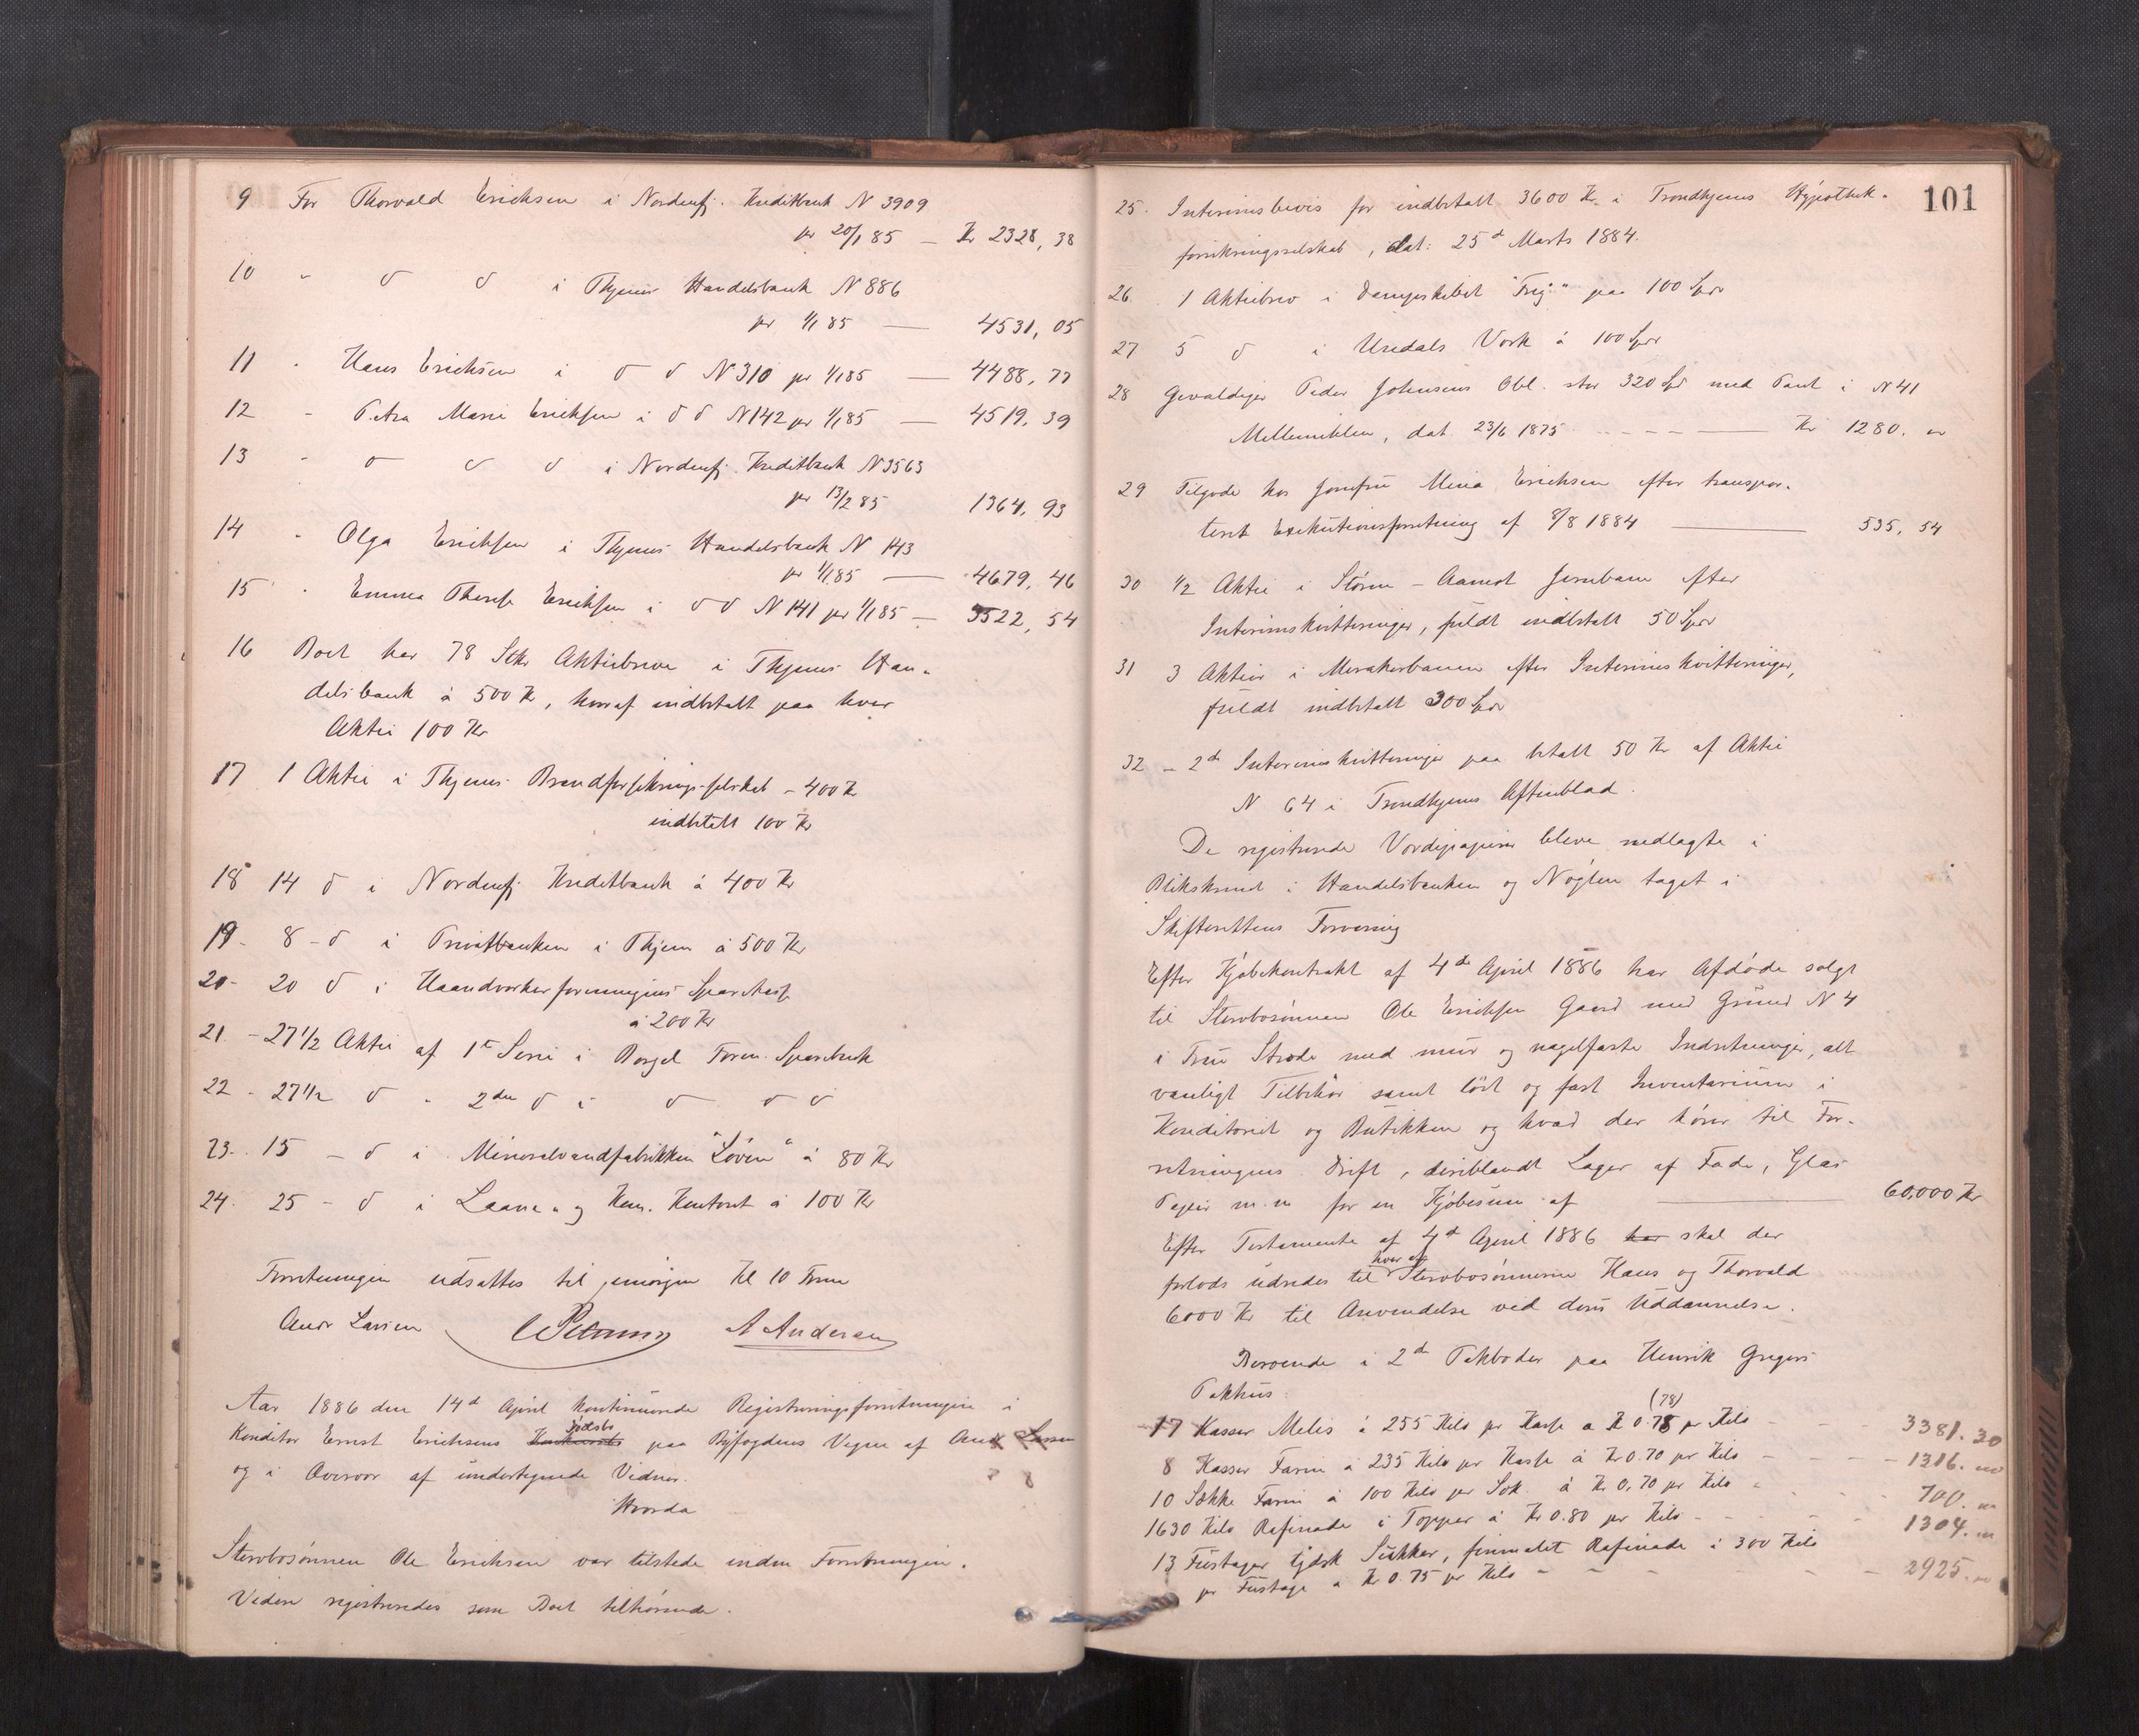 9 For Thorvald Erichsen i Nordenfj. Kreditbank N 3909
pr 20/1 85 — Kr 2328, 38
10 " d d i Thjems Handelsbank N 886
pr 1/1 85 — 4531, 05
11 " Hans Erichsen i d d N 310 pr 1/1 85 — 4488, 77
12 " Petra Marie Erichsen i d d N 142 pr 1/1 85 — 4519, 39
13 " d d d i Nordenfj. Kreditbank N 3563
pr 13/2 85 1364, 93
14 " Olga Erichsen i Thjems Handelsbank N 143
pr 1/1 85 — 4679, 46
15 " Emma Therese Erichsen i d d N 141 pr 1/1 85 — 3522, 54
16 Boet har 78 Stkr Aktiebreve i Thjems Han-
delsbank à 500 Kr, hvoraf indbetalt paa hver
Aktie 100 Kr
17 1 Aktie i Thjems Brandforsikringsselskab - 400 Kr
indbetalt 100 Kr
18 14 d i Nordenfj Kreditbank à 400 Kr
19 - 8 - d i Privatbanken i Thjem à 500 Kr
20 - 20 d i Haandværkerforeningens Sparekasse
à 200 Kr
21. - 27 1/2 Aktie af 1te Serie i Borgel Foren. Sparebank
22 - 27 1/2 d " 2den d i d d d
23. - 15 - d i Mineralvandfabrikken "Løven" à 80 Kr
24. 25 - d i Laane- og Kom. Kontoret à 100 Kr
Forretningen udsattes til imorgen Kl 10 Form
Andr Larsen A Andersen
Aar 1886 den 14d April kontinuerede Registreringsforretningen i
Konditor Ernst Erichsens Dødsbo paa Byfogdens Vegne af Andr Larsen
og i Overvær af undertegnede Vidner.
Hvorda
Stervbosønnen Ole Erichsen var tilstede under Forretningen.
Videre registreredes som Boet tilhørende.
101
25. Interimsbevis for indbetalt 3600 Kr i Trondhjems Hypothek-
forsikringsselskab, dat: 25d Marts 1884.
26. 1 Aktiebrev i Dampskibet "Trig" paa 100 Spdr
27 5 d i Uredals Værk à 100 Spdr
28 Gevaldiger Peder Johnsens Obl. stor 320 Spd med Pant i N 41
Mellemilden, dat 23/6 1875 — Kr 1280. "
29 Tilgode hos Jomfru Mina Erichsen efter transpor-
teret Exekutionsforretning af 8/8 1884 — 535, 54
30 1/2 Aktie i Støren - Aamot Jernbane efter
Interimskvitteringer, fuldt indbetalt 50 Spdr
31 3 Aktier i Merakerbanen efter Interimskvitteringer,
fuldt indbetalt 300 Spdr
32 - 2de Interimskvitteringer paa betalt 50 Kr af Aktie
N 64 i Trondhjems Aftenblad.
De registrerede Værdipapirer bleve nedlagte i
Blikskrinet i Handelsbanken og Nøglen taget i
Skifterettens Forvaring
Efter Kjøbekontrakt af 4de April 1886 har Afdøde solgt
til Stervbosønnen Ole Erichsen Gaard med Grund N 4
i Frue Stræde med mur og nagelfaste Indretninger, alt
vanligt Tilbehør samt løst og fast Inventarium i
Konditoriet og Butikken og hvad der hører til For-
retningens Drift, deriblandt Lager af Fade, Glas
Papir m. m for en Kjøbesum af — 60,000 Kr
Efter Testamente af 4d April 1886 har skal der
forlods udredes til hver af Stervbosønnerne Hans og Thorvald
6000 Kr til Anvendelse ved deres Uddannelse.
Beroende i 2de Pakboder paa Henrik Gregers
Pakhus:
(78)
17 Kasser Melis à 255 Kilo pr Kasse a Kr 0.78 pr Kilo - 3381. 30
8 Kasser Farin à 235 Kilo pr Kasse à Kr 0.70 pr Kilo - 1316. "
10 Sække Farin à 100 Kilo pr Sæk. à Kr 0,70 pr Kilo - 700. "
1630 Kilo Rafinade i Topper à Kr 0.80 pr Kilo - 1304. "
13 Fustager tydsk Sukker, finmalet Rafinade à 300 Kilo
pr Fustage a Kr 0.75 pr Kilo - 2925. "